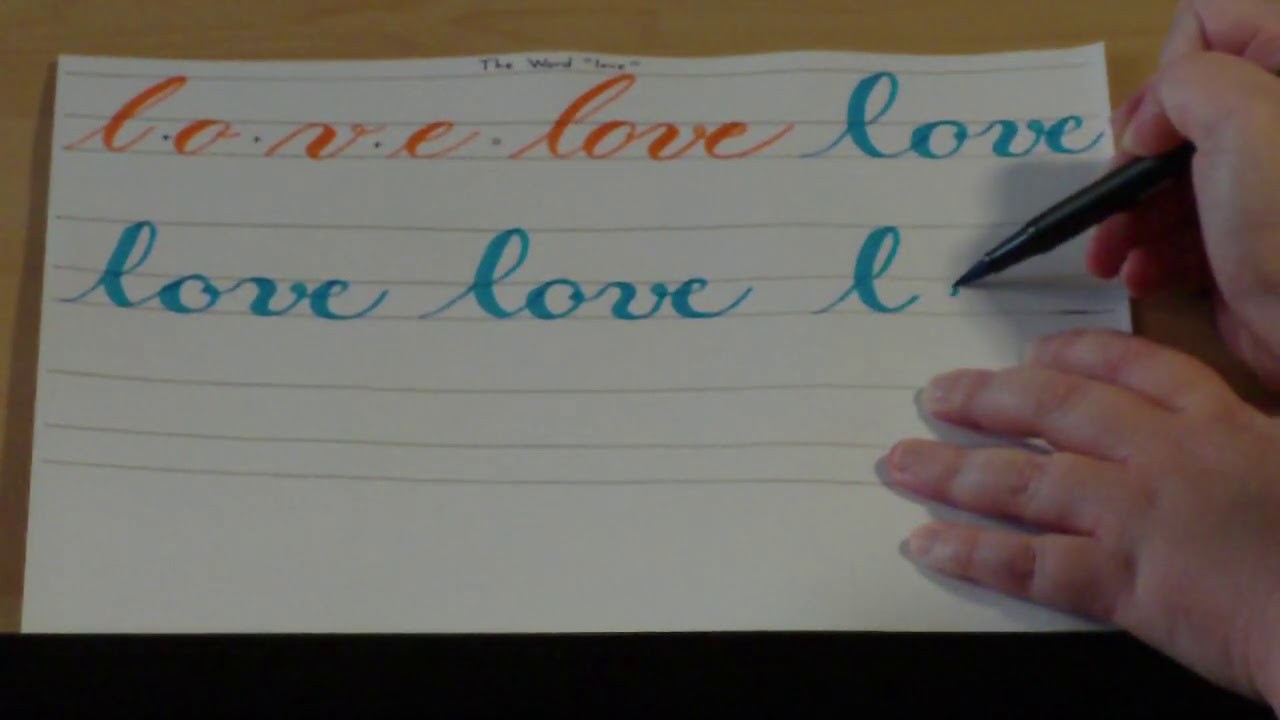 The Word "love"
l · o · v · e · love love
love love l